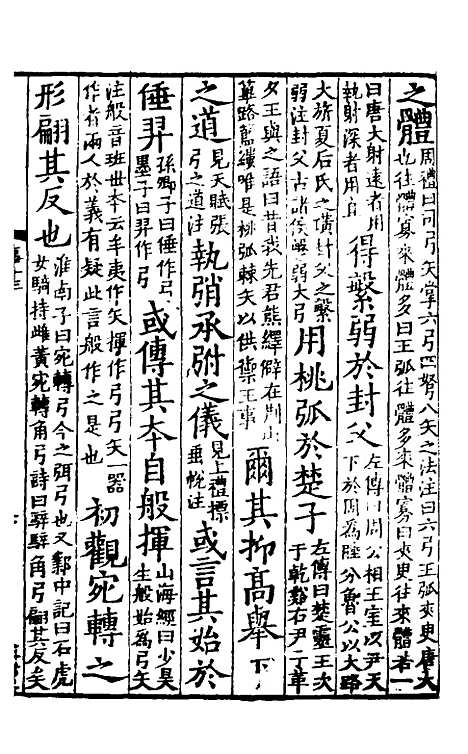 之體周禮曰司弓矢掌六弓四弩八矢之法注曰六弓王弧夾庾唐大也往體寡來體多曰王弧往體多來體寡曰夾庾往來體若一
曰唐大射遠者用執射深者用直得繁弱於封父左傳曰周公相王室以尹天下於周為睦分魯公以大路
大旂夏后氏之璜封父之繁弱注封父古諸侯繁弱大弓用桃弧於楚子左傳曰楚靈王次于乾谿右尹子革
夕王與之語曰昔我先君熊繹辟在荆山篳路藍縷唯是桃弧棘矢以供禦王事爾其抑高舉下
之道見天賦張弓之道注執弰承弣之儀見上禮標垂帨注或言其始於
倕羿孫卿子曰倕作弓墨子曰羿作弓或傳其本自般揮山海經曰少昊生般始為弓矢
注般音班世本云牟夷作矢揮作弓弓矢一器作者兩人於義有疑此言般作之是也初觀宛轉之
形翩其反也淮南子曰宛轉弓今之弭弓也又鄴中記曰石虎女騎持雌黃宛轉角弓詩曰騂騂角弓翩其反矣